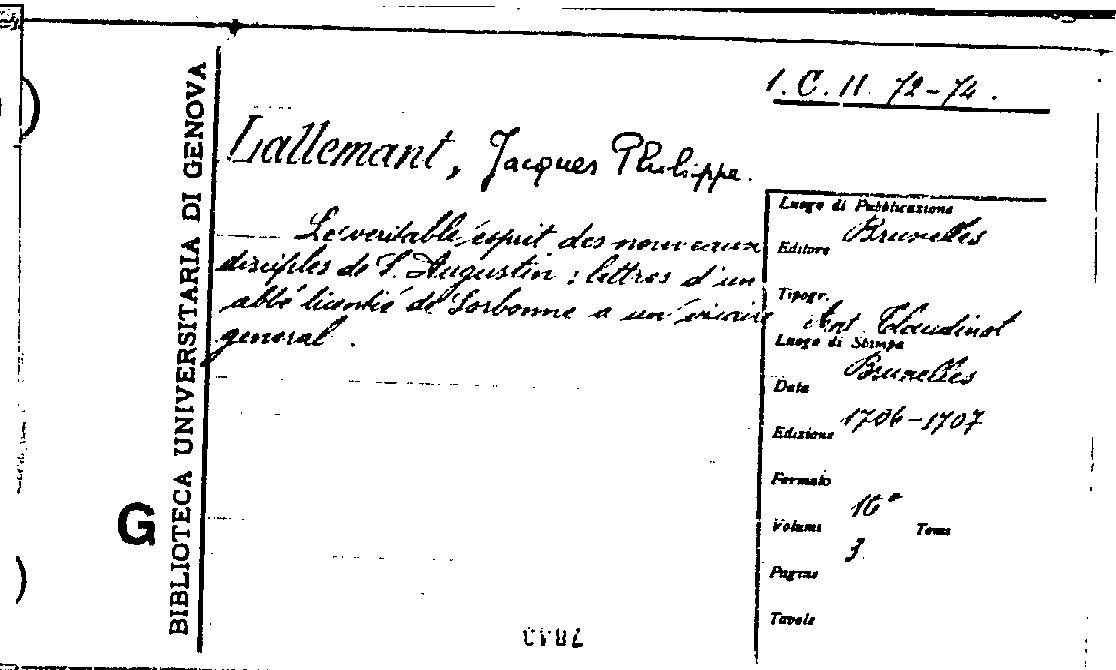 1. C. 11. 72-74.
BIBLIOTECA UNIVERSITARIA DI GENOVA
G
Lallemant, Jacques Philippe.
Le veritable esprit des nouveaux
disciples de S. Augustin : lettres d'un
abbé licentié de Sorbonne a un vicaire
general.
Luogo di Pubblicazione
Bruxelles
Editore
Tipogr.
Ant. Claudinot
Luogo di Stampa
Bruxelles
Data
1706-1707
Edizione
Formato
16°
Volumi Tomi
3
Pagine
Tavole